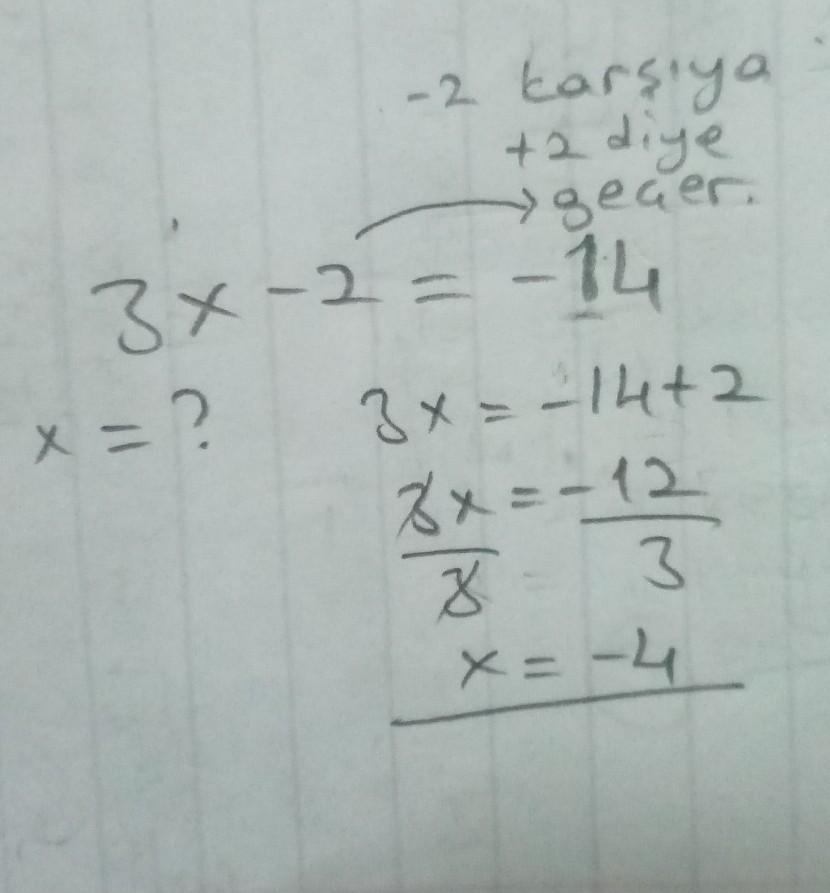 -2 karşıya
+2 diye
geçer.
3x - 2 = -14
x = ?
3x = -14+2
3x = -12
3 3
x = -4